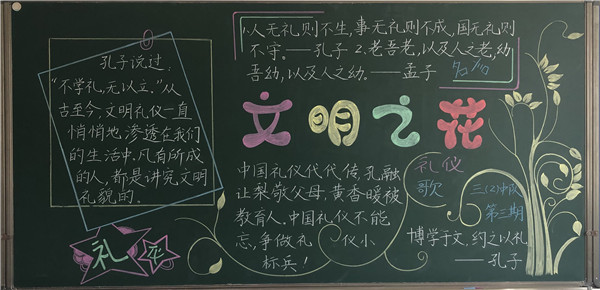 孔子说过,
“不学礼,无以立。”从
古至今,文明礼仪一直
悄悄地,渗透在我们
的生活中,凡有所成
的人,都是讲究文明
礼貌的。
礼
仪
1.人无礼则不生,事无礼则不成,国无礼则
不宁。——孔子 2.老吾老,以及人之老,幼
吾幼,以及人之幼。——孟子
名言
文明之花
中国礼仪代代传,孔融
让梨敬父母,黄香暖被
教育人,中国礼仪不能
忘,争做礼 仪小
标兵!
礼仪
歌
三(2)中队
第三期
博学于文,约之以礼
——孔子